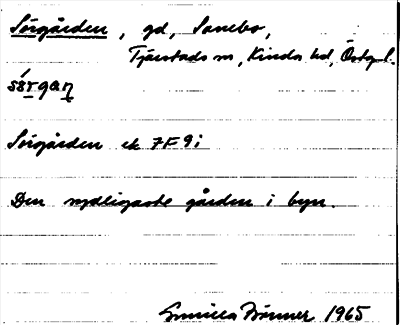 Sörgården, gd, Sanebo,
Tjärstads sn, Kinda hd, Östergl.
sǿrgaṉ
Sörgården ek 7F9i
Den sydligaste gården i byn.
Gunilla Brönner 1965